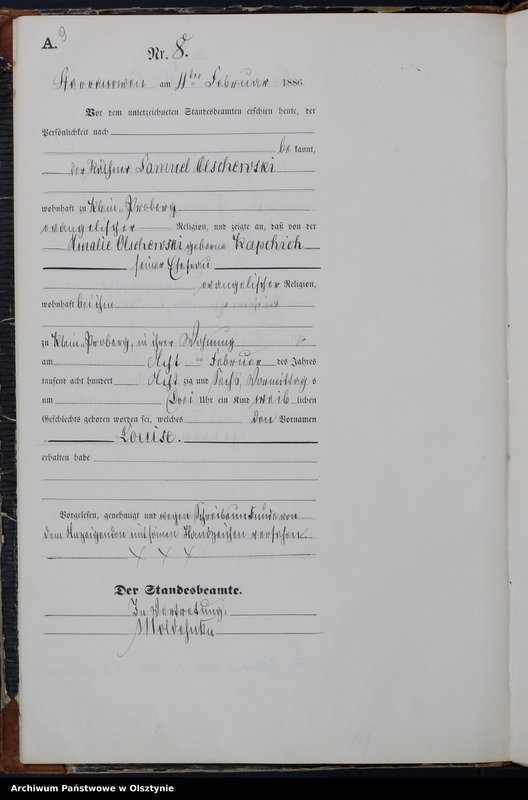 A. 9
Nr. 8.
am 11ten Februar 1886.
Vor dem unterzeichneten Standesbeamten erschien heute, der
Persönlichkeit nach
be kannt,
der Käthner Samuel Olschewski
wohnhaft zu Klein-Proberg
evangelischer Religion, und zeigte an, daß von der
Amalie Olschewski geborene Kapchich
seiner Ehefrau
evangelischer Religion,
wohnhaft bei ihm
zu Klein-Proberg, in ihrer Wohnung
am Acht Februar des Jahres
tausend acht hundert Acht zig und Sechs, Vormittag s
um Drei Uhr ein Kind weib lichen
Geschlechts geboren worden sei, welches den Vornamen
Louise.
erhalten habe
Vorgelesen, genehmigt und wegen Schreibunkunde von
dem Anzeigenden mit seinen Handzeichen versehen
x x x
Der Standesbeamte.
In Vertretung:
Archiwum Państwowe w Olsztynie